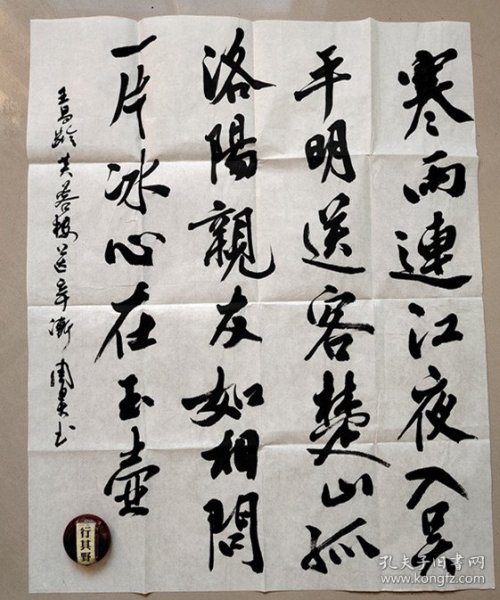 寒雨連江夜入吴
平明送客楚山孤
洛陽親友如相問
一片冰心在玉壺
王昌齡芙蓉樓送辛漸 書
行其野
孔夫子旧书网
www.kongfz.com